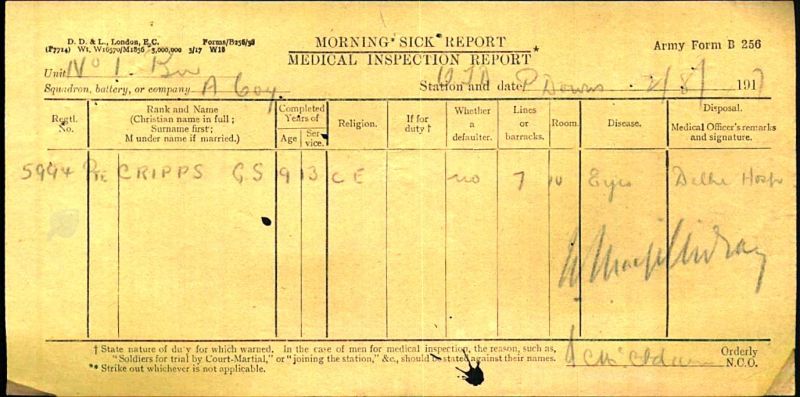 D. D. & L., London, E.C. Forms/B256/36
(P7714) Wt. W16570/M1856 3,000,000 3/17 W18
MORNING SICK REPORT
MEDICAL INSPECTION REPORT **
Army Form B 256
Unit No 1.
Squadron, battery, or company A Coy
Station and date P Downs 2/8/ 1917
Regtl. No.
Rank and Name (Christian name in full; Surname first; M under name if married.)
Completed Years of
Age
Service.
Religion.
If for duty †
Whether a defaulter.
Lines or barracks.
Room.
Disease.
Disposal. Medical Officer's remarks and signature.
5994 Pte CRIPPS G.S 19 13 C E no 7 10 Eyes Delhi Hosp
† State nature of duty for which warned. In the case of men for medical inspection, the reason, such as,
"Soldiers for trial by Court-Martial," or "joining the station," &c., should be stated against their names.
** Strike out whichever is not applicable.
Orderly
N.C.O.